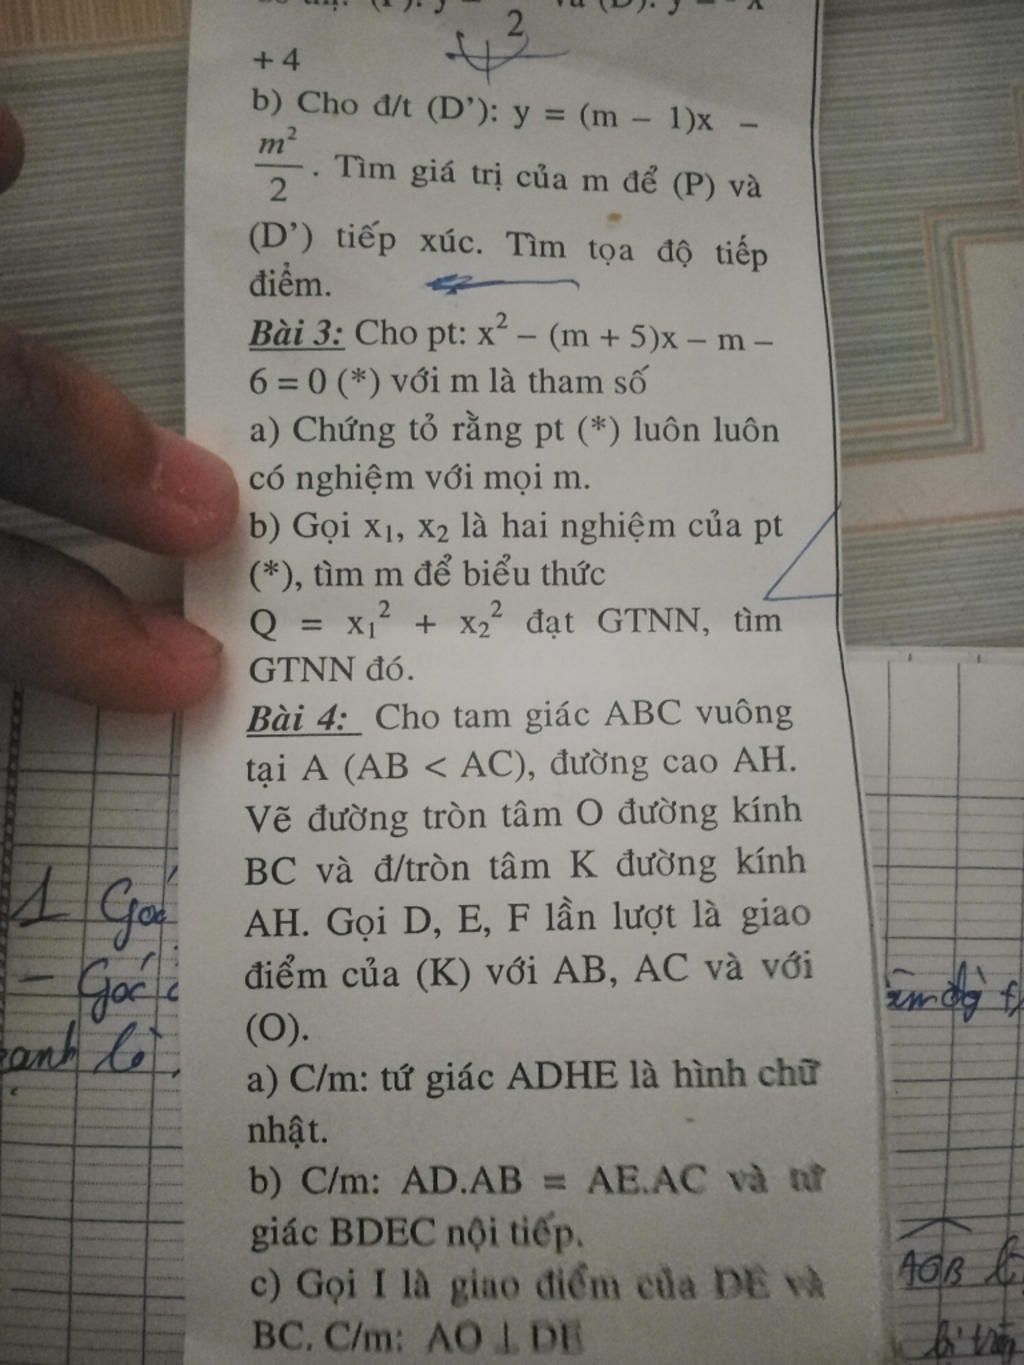 2
+ 4
b) Cho đ/t (D'): y = (m – 1)x –
m²/2 . Tìm giá trị của m để (P) và
(D') tiếp xúc. Tìm tọa độ tiếp
điểm.
Bài 3: Cho pt: x² – (m + 5)x – m –
6 = 0 (*) với m là tham số
a) Chứng tỏ rằng pt (*) luôn luôn
có nghiệm với mọi m.
b) Gọi x₁, x₂ là hai nghiệm của pt
(*), tìm m để biểu thức
Q = x₁² + x₂² đạt GTNN, tìm
GTNN đó.
Bài 4: Cho tam giác ABC vuông
tại A (AB < AC), đường cao AH.
Vẽ đường tròn tâm O đường kính
BC và đ/tròn tâm K đường kính
AH. Gọi D, E, F lần lượt là giao
điểm của (K) với AB, AC và với
(O).
a) C/m: tứ giác ADHE là hình chữ
nhật.
b) C/m: AD.AB = AE.AC và tứ
giác BDEC nội tiếp.
c) Gọi I là giao điểm của DE và
BC. C/m: AO ⊥ DE
1 Góc
– Góc
AOB